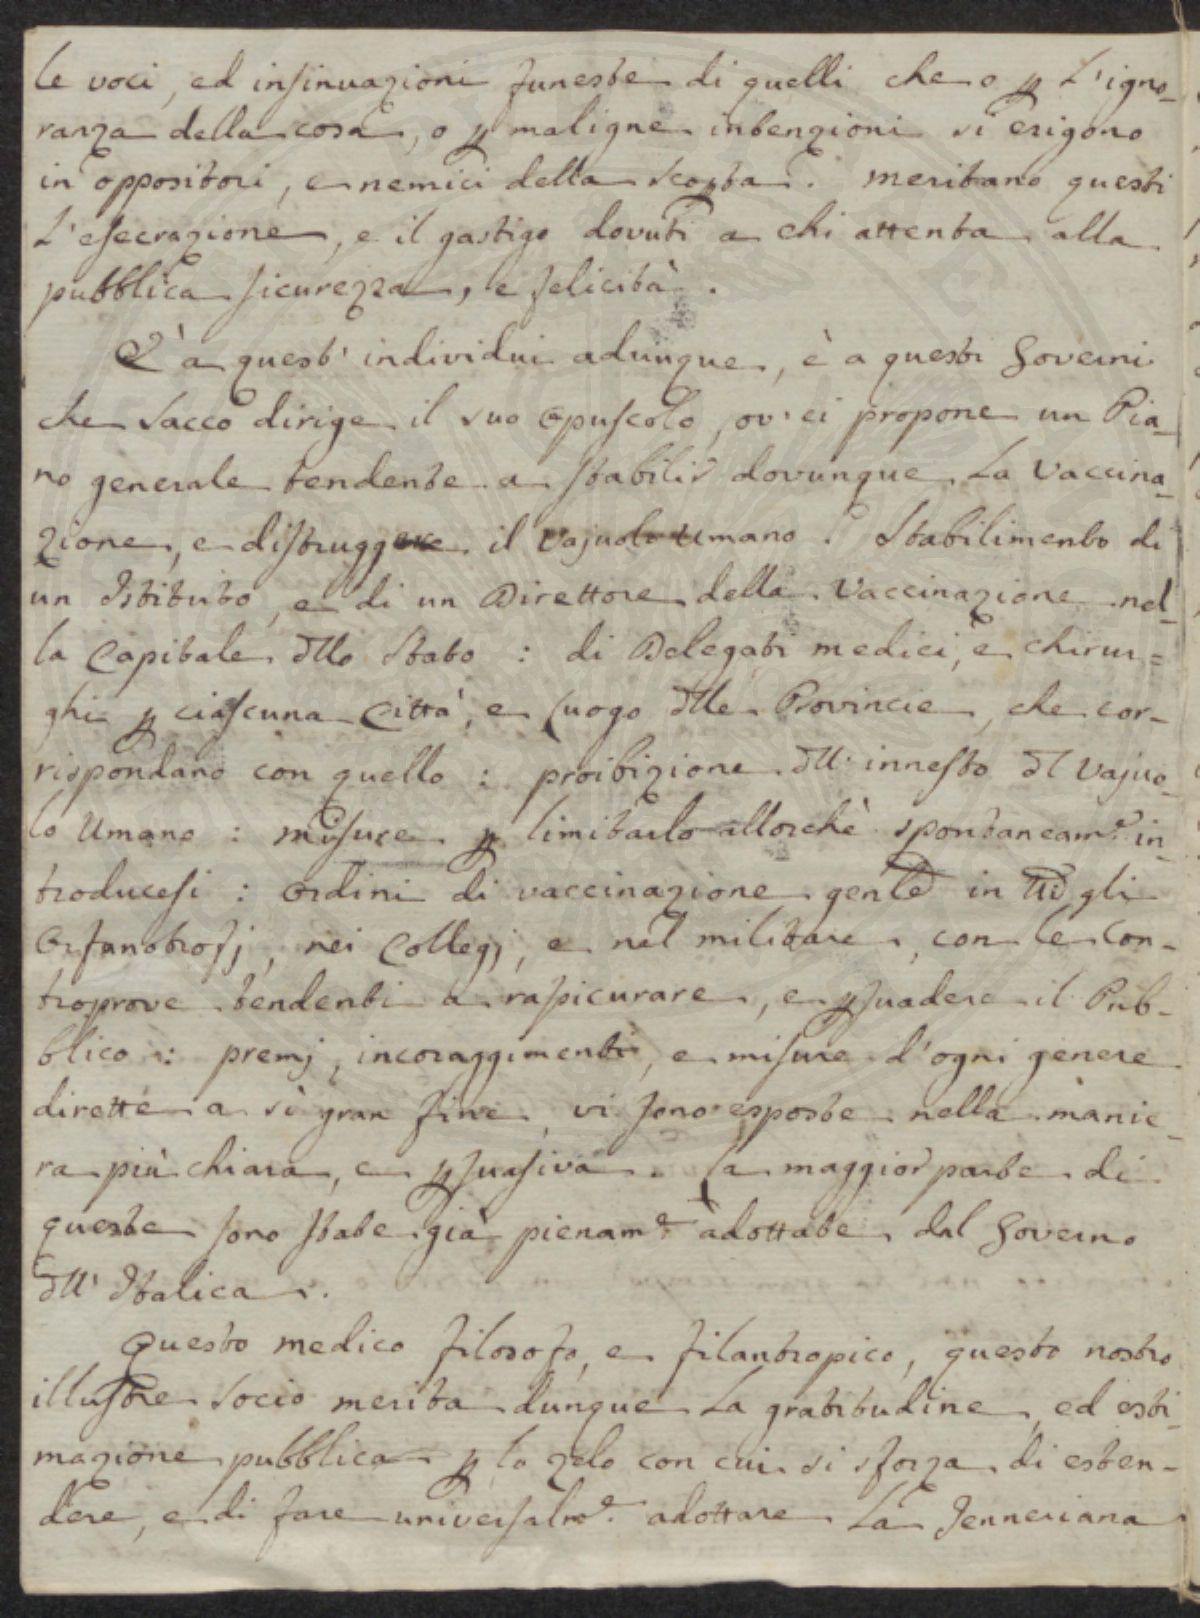 le voci, ed insinuazioni funeste di quelli che o p l'igno-
ranza della cosa, o p maligne intenzioni si erigono
in oppositori, e nemici della scopta. meritano questi
l'esecrazione, e il gastigo dovuti a chi attenta alla
pubblica sicurezza, e felicità.
È a quest' individui adunque, è a questi Governi
che Sacco dirige il suo Opuscolo, ov' ei propone un Pia-
no generale tendente a stabilir dovunque la Vaccina-
zione, e distruggere il Vajuolo Umano. Stabilimento di
un Istituto, e di un Direttore della Vaccinazione nel-
la Capitale dllo Stato : di Delegati medici, e chirur=
ghi p ciascuna Città, e luogo dlle Provincie, che cor-
rispondano con quello : proibizione dll' innesto dl Vajuo-
lo Umano : misure p limitarlo allorchè spontaneam.e in-
troducesi : Ordini di vaccinazione genle in tti gli
Orfanotrofj, nei Collegj, e nel militare, con le con-
troprove tendenti a rassicurare, e psuadere il Pub-
blico : premj, incoraggimenti, e misure d'ogni genere
dirette a sì gran fine, vi sono esposte nella manie-
ra più chiara, e psuasiva. La maggior parte di
queste sono state già pienam.e adottate dal Governo
dll' Italica.
Questo medico filosofo, e filantropico, questo nostro
illustre Socio merita dunque la gratitudine, ed esti-
mazione pubblica p lo zelo con cui si sforza di esten-
dere, e di fare universalm.e adottare la Jenneriana